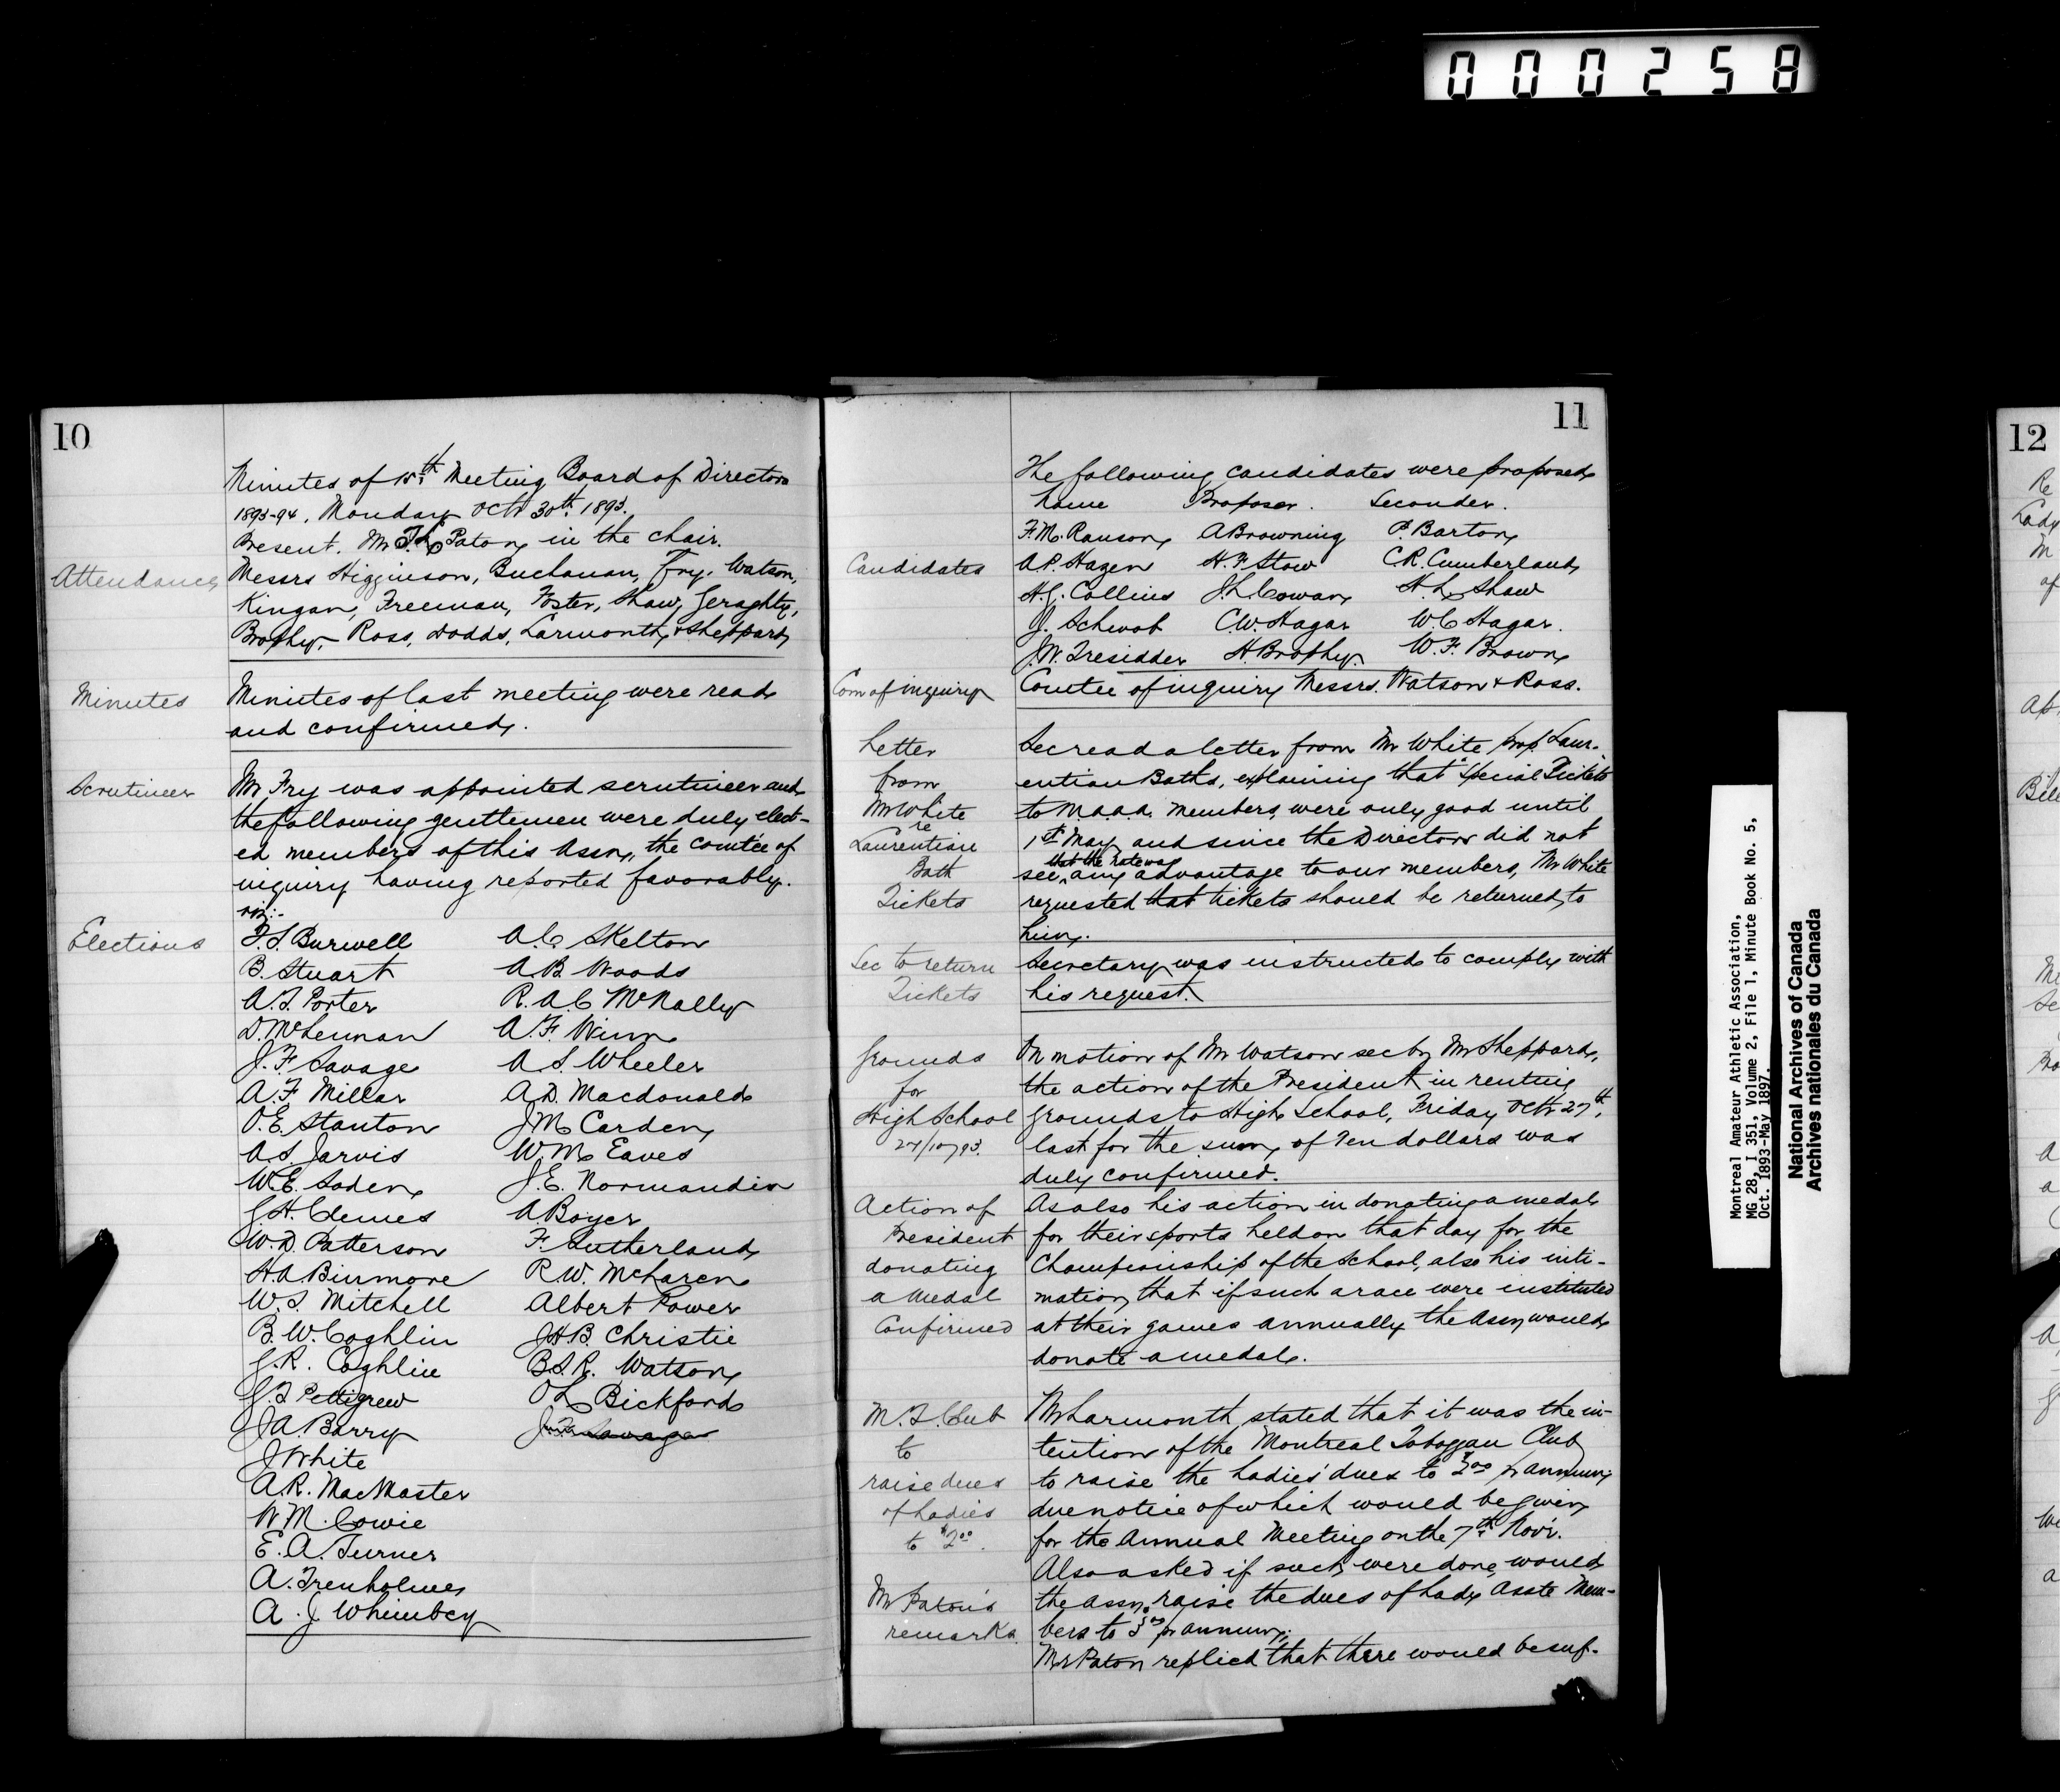 000258
10
Minutes of 15th Meeting Board of Directors
1893-94, Monday Octr 30th 1893.
Present. Mr T. L. Paton in the chair.
Attendance
Messrs Higginson, Buchanan, Fry, Watson,
Kingan, Freeman, Foster, Shaw, Geraghty,
Brophy, Ross, Dodds, Larmonth, & Sheppard
Minutes
Minutes of last meeting were read
and confirmed.
Scrutineer
Mr Fry was appointed scrutineer and
the following gentlemen were duly elect-
ed members of this Assn, the comtee of
inquiry having reported favorably.
viz:-
Elections
B. Stuart
A.T. Porter
D. McLennan
J.F. Savage
A.F. Millar
O.E. Stanton
A.S. Jarvis
W.E. Soden
G.H. Clemes
W.D. Patterson
H.A Birmore
W.S. Mitchell
B.W. Coghlin
G.R. Coghlin
G.T Pettigrew
J.A. Barry
J White
A.R. MacMaster
W M. Cowie
E.A. Turner
A. Trenholme
A.J Whimbey
A.C. Skelton
A.B. Woods
R.A.C McNally
A.F. Winn
A S. Wheeler
A.D. Macdonald
J.M Carden
W.M Eaves
J.E. Normandin
A. Boyer
F. Sutherland
R.W. McLaren
Albert Power
J.H.B. Christie
B.S.R. Watson
O L Bickford
J. F. Savage
11
The following candidates were proposed
Name Proposer. Seconder.
Candidates
F.M. Ranson A Browning P. Barton
A.P. Hagen H.F. Stow C.R. Cumberland
H.G. Collins J.L. Cowan H.L. Shaw
J. Schwob C.W. Hagar W.C Hagar.
J.W. Tresidder H. Brophy. W.F. Brown
Com of inquiry
Comtee of inquiry Messrs. Watson & Ross.
Letter
from
Mr White
re
Laurentian
Bath
Tickets
Sec read a letter from Mr White prop Laur-
entian Baths, explaining that "Special Tickets
to M.A.A.A. members, were only good until
1st May and since the Directors did not
that the rate was
see any advantage to our members, Mr White
requested that tickets should be returned to
him.
Sec to return
Tickets
Secretary was instructed to comply with
his request.
Grounds
for
High School
27/10/93.
On motion of Mr Watson sec by Mr Sheppard,
the action of the President in renting
grounds to High School, Friday Octr 27th,
last for the sum of Ten dollars was
duly confirmed.
Action of
President
donating
a medal
Confirmed
As also his action in donating a medal
for their sports held on that day for the
Championship of the School, also his inti-
mation that if such a race were instituted
at their games annually the Assn would
donate a medal.
M.T. Club
to
raise dues
of Ladies
to $2.00.
Mr Larmonth stated that it was the in-
tention of the Montreal Toboggan Club
to raise the Ladies' dues to $2.00 pr annum
due notice of which would be given
for the Annual Meeting on the 7th Novr.
Also asked if such were done, would
the Assn, raise the dues of Lady Asste Mem-
bers to 3.00 pr annum;
Mr Paton's
remarks.
Mr Paton replied that there would be suf-
12
Re
Lady
M
of
Montreal Amateur Athletic Association,
MG 28, I 351, Volume 2, File 1, Minute Book No. 5,
Oct. 1893-May 1897.
National Archives of Canada
Archives nationales du Canada